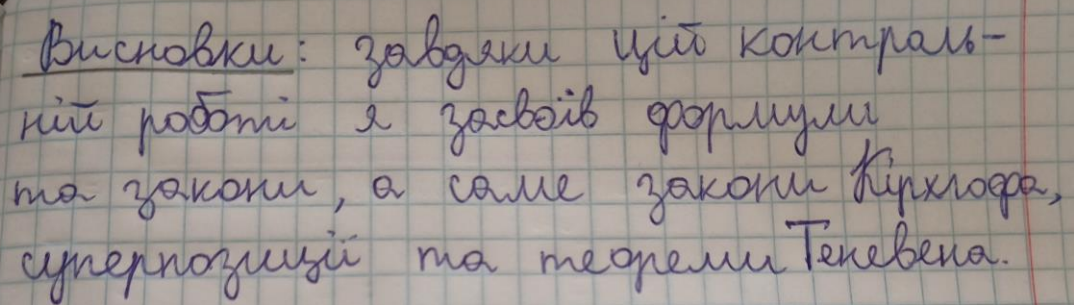 Висновки: завдяки цій контроль-
ній роботі я засвоїв формули
та закони, а саме закони Кірхгофа,
суперпозиції та теореми Теневена.